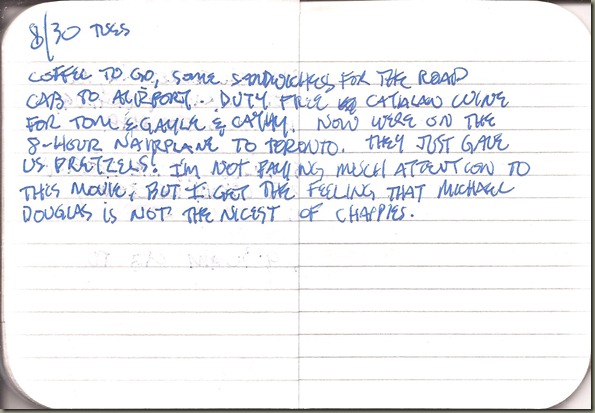 8/30 TUES
COFFEE TO GO, SOME SANDWICHES FOR THE ROAD
CAB TO AIRPORT. DUTY FREE CATALAN WINE
FOR TOM & GAYLE & CATHY. NOW WE'RE ON THE
8-HOUR NAIRPLANE TO TORONTO. THEY JUST GAVE
US PRETZELS! I'M NOT PAYING MUCH ATTENTION TO
THIS MOVIE, BUT I GET THE FEELING THAT MICHAEL
DOUGLAS IS NOT THE NICEST OF CHAPPIES.